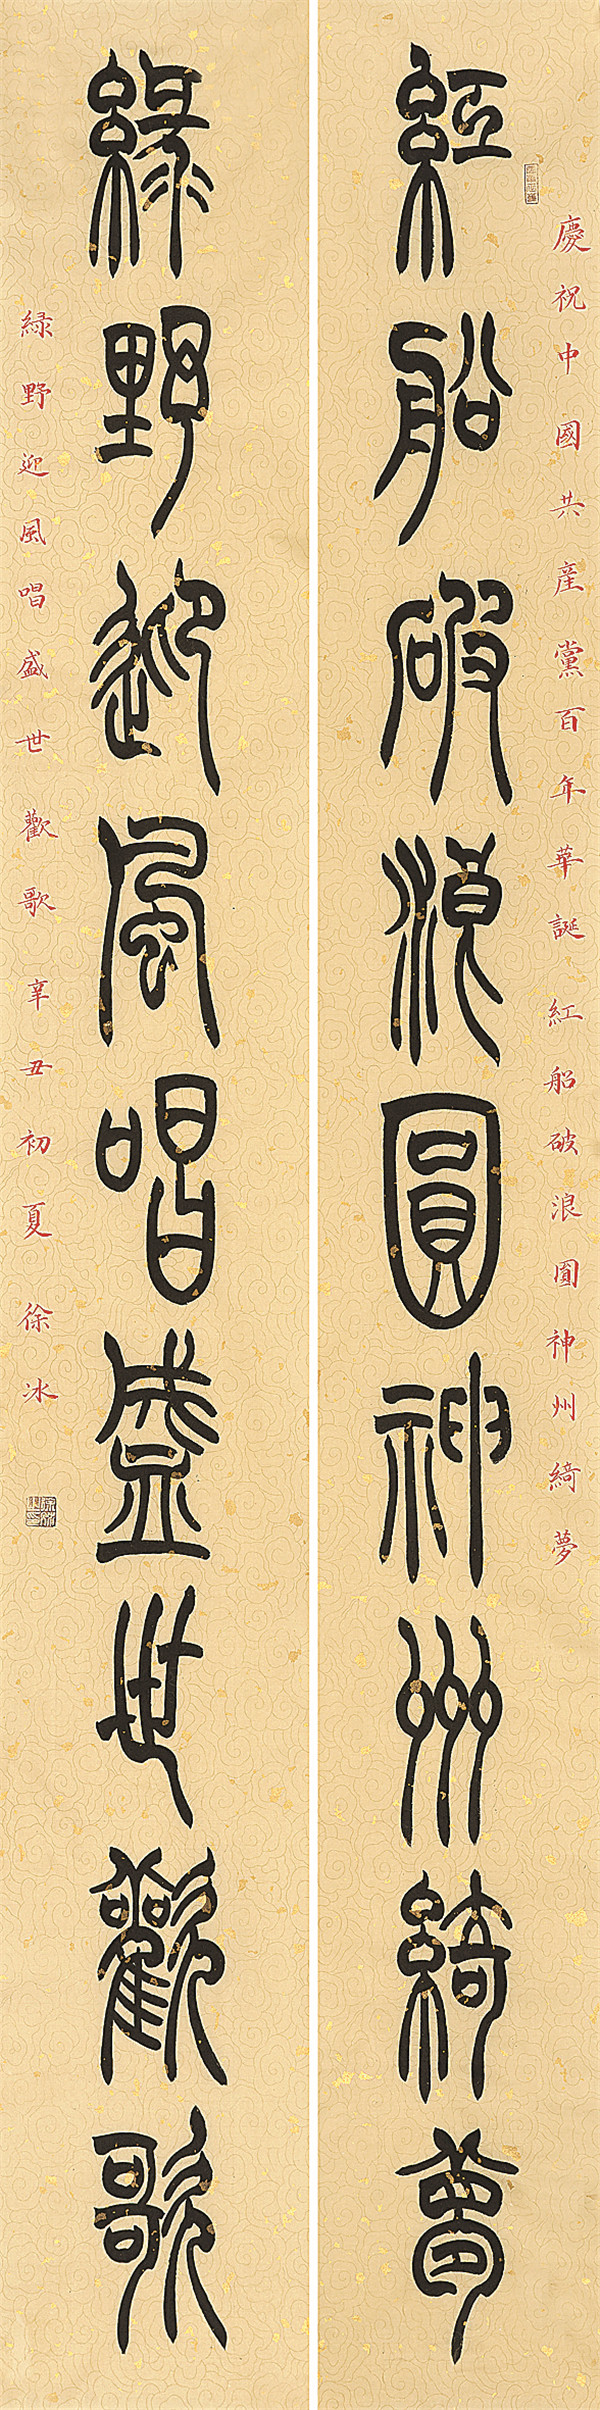 慶祝中國共産黨百年華誕紅船破浪圓神州綺夢
紅船破浪圓神州綺夢
綠野迎風唱盛世歡歌
緑野迎風唱盛世歡歌辛丑初夏徐冰